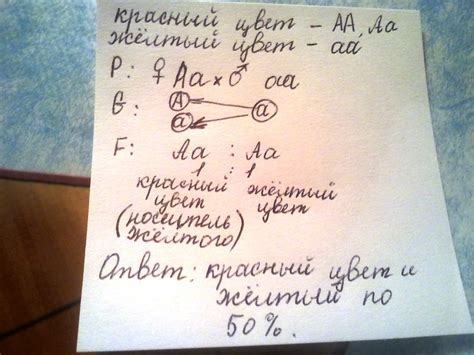 красный цвет – АА, Аа
жёлтый цвет – аа
P: ♀ Аа × ♂ аа
G: А а а
F: Аа : Аа
1 : 1
красный жёлтый
цвет цвет
(носитель
жёлтого)
Ответ: красный цвет и
жёлтый по
50%.